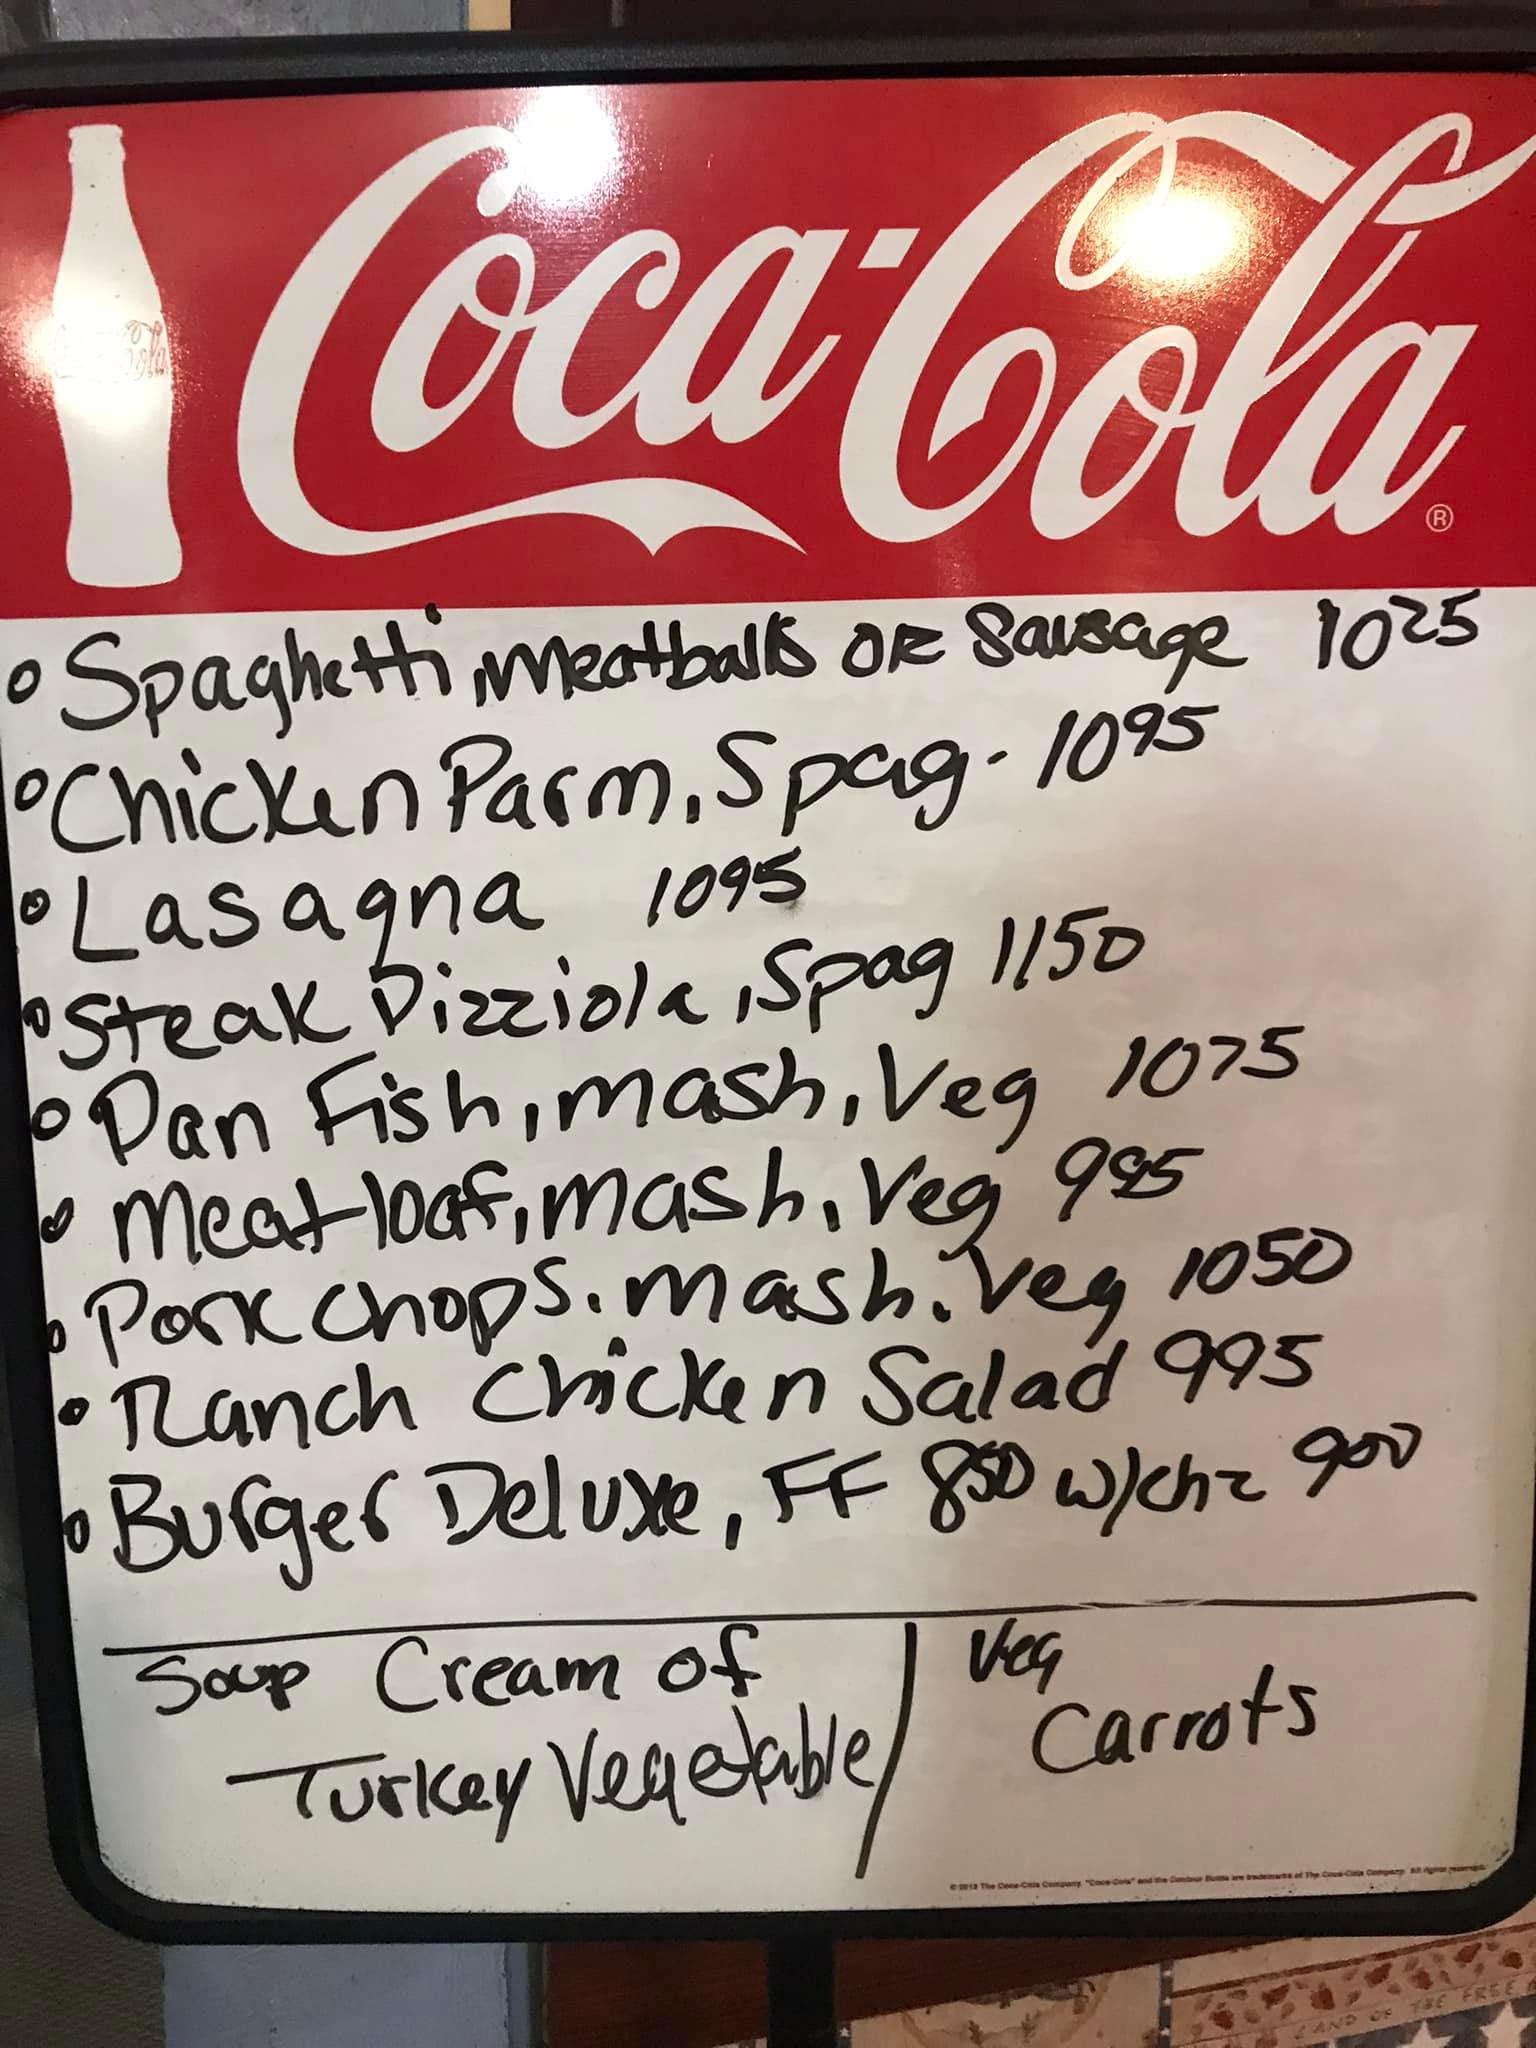 Coca-Cola
Coca-Cola ®
Spaghetti, Meatballs OR Sausage 1025
Chicken Parm, Spag. 1095
Lasagna 1095
Steak Pizziola, Spag 1150
Pan Fish, mash, Veg 1075
Meatloaf, mash, Veg 995
Pork Chops, mash, Veg 1050
Ranch Chicken Salad 995
Burger Deluxe, FF 850 w/chz 900
Soup Cream of
Turkey Vegetable
Veg
Carrots
© 2012 The Coca-Cola Company. "Coca-Cola" and the Contour Bottle are trademarks of The Coca-Cola Company. All rights reserved.
LAND OF THE FREE